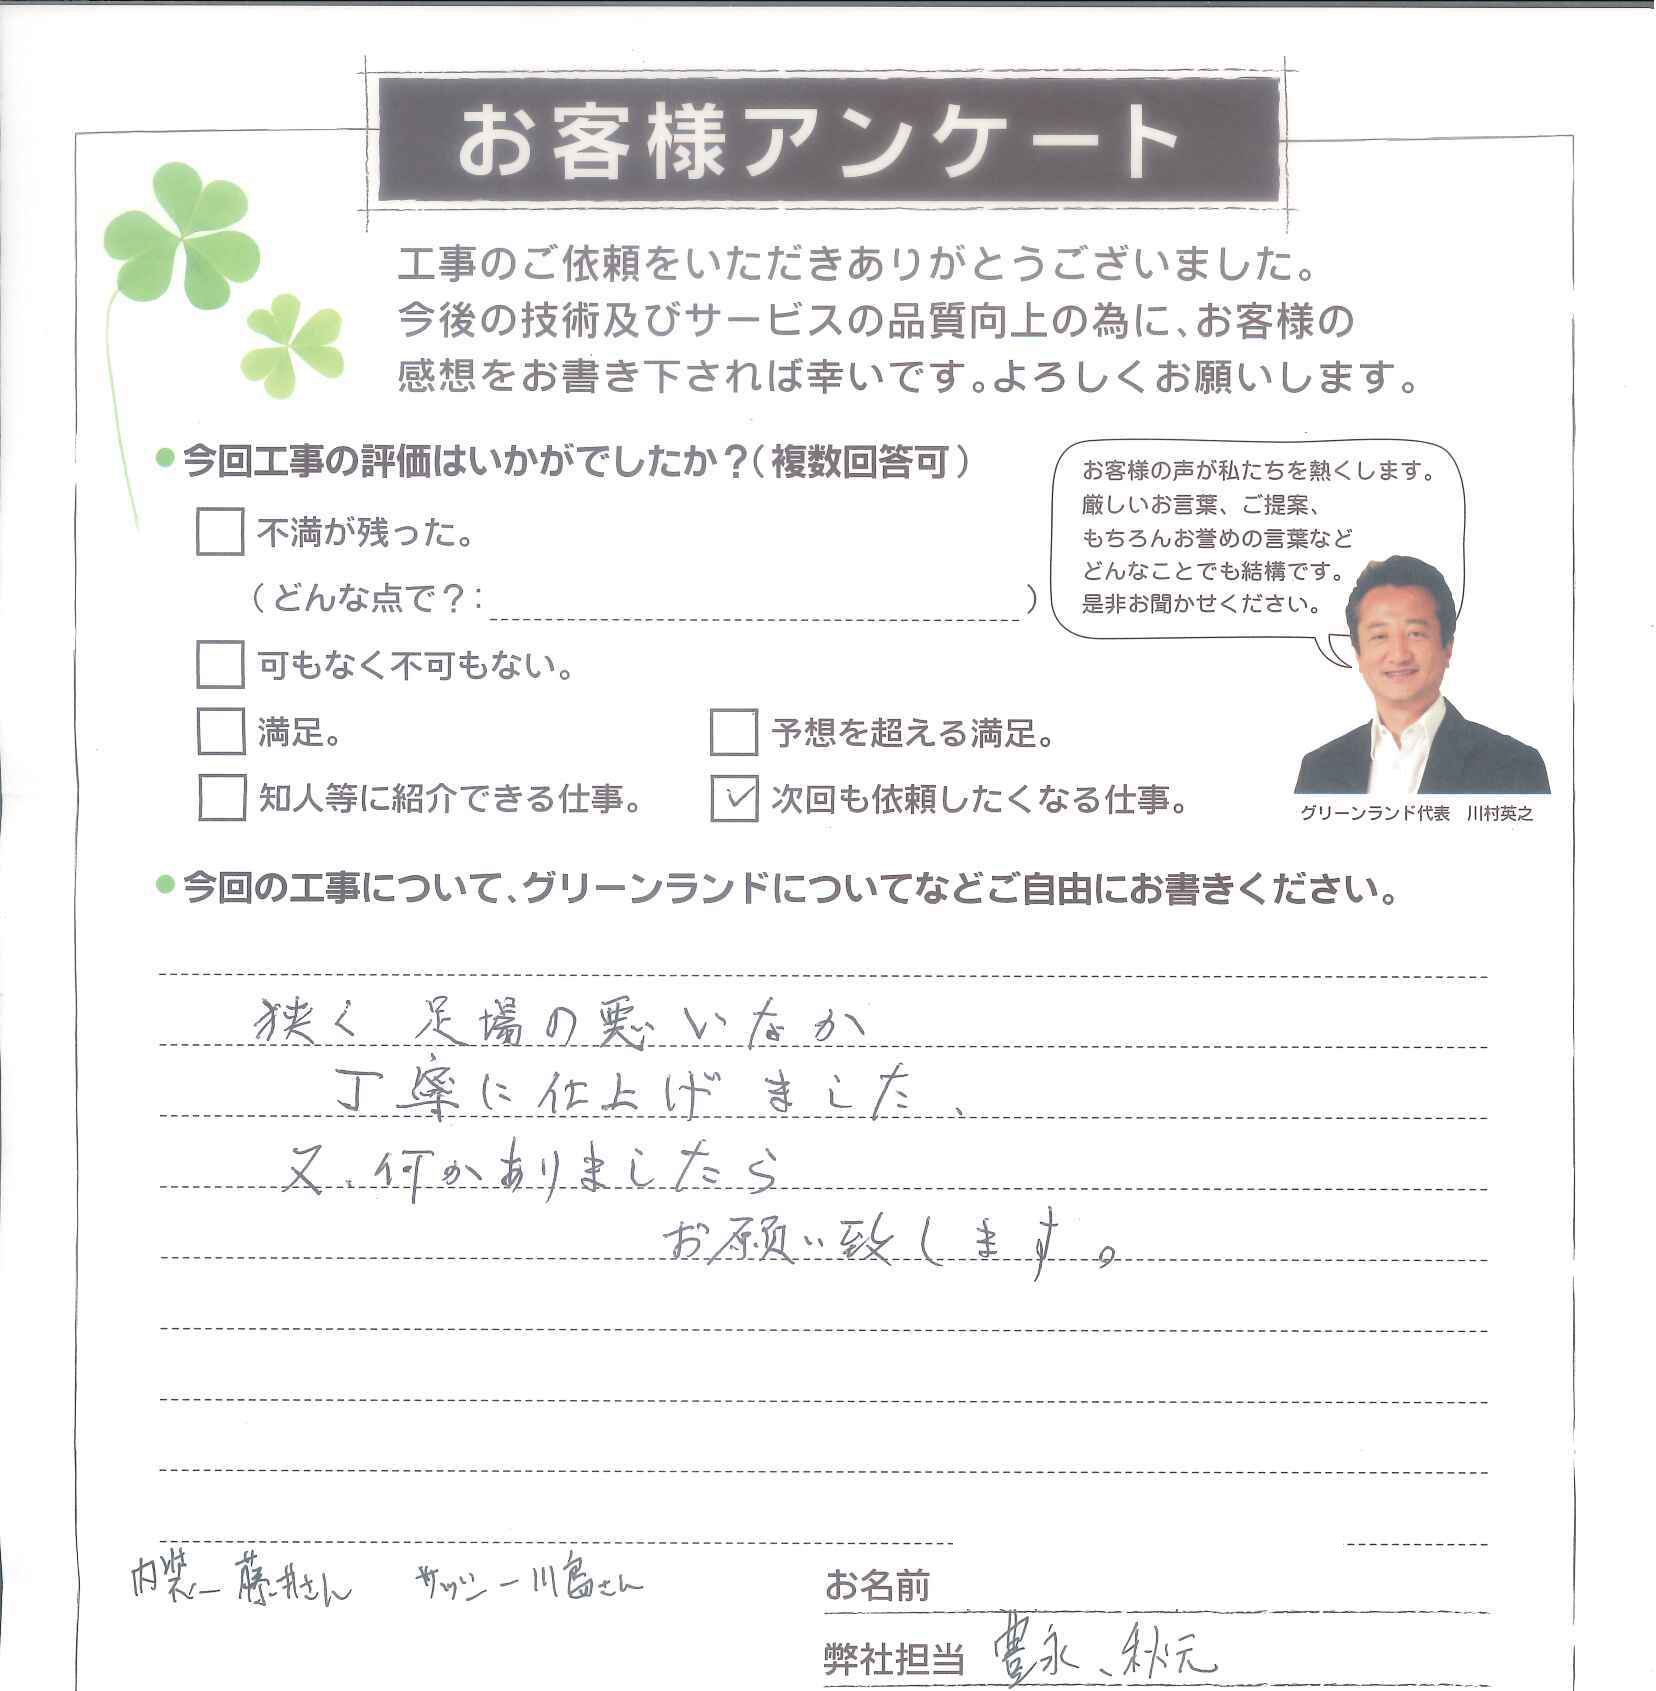 お客様アンケート
工事のご依頼をいただきありがとうございました。
今後の技術及びサービスの品質向上の為に、お客様の
感想をお書き下されば幸いです。よろしくお願いします。
今回工事の評価はいかがでしたか？(複数回答可)
お客様の声が私たちを熱くします。
厳しいお言葉、ご提案、
もちろんお誉めの言葉など
どんなことでも結構です。
是非お聞かせください。
不満が残った。
(どんな点で？: )
可もなく不可もない。
満足。
予想を超える満足。
知人等に紹介できる仕事。
次回も依頼したくなる仕事。
グリーンランド代表 川村英之
今回の工事について、グリーンランドについてなどご自由にお書きください。
狭く 足場の悪いなか
丁寧に仕上げました、
又、何かありましたら
お願い致します。
内装ー藤井さん サッシー川島さん
お名前
弊社担当 豊永、秋元